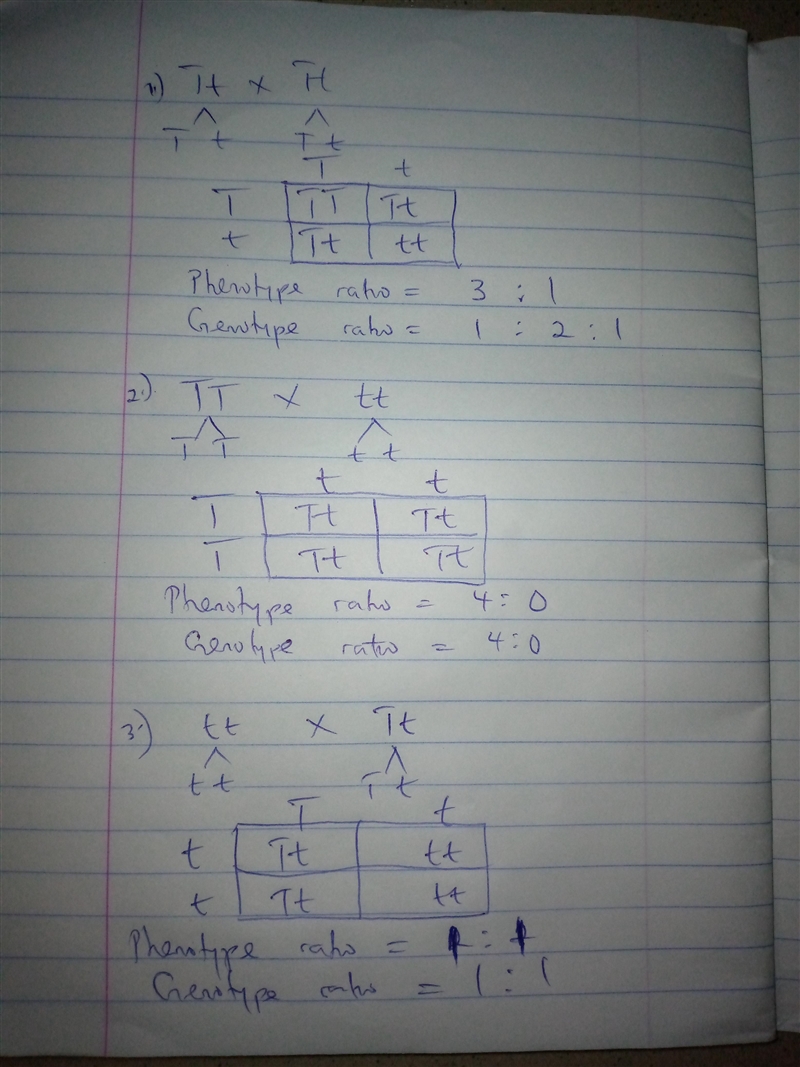 1) Tt x Tt
T t T t
T t
T TT Tt
t Tt tt
Phenotype ratio = 3 : 1
Genotype ratio = 1 : 2 : 1
2.) TT x tt
T T t t
t t
T Tt Tt
T Tt Tt
Phenotype ratio = 4 : 0
Genotype ratio = 4 : 0
3.) tt x Tt
t t T t
T t
t Tt tt
t Tt tt
Phenotype ratio = 1 : 1
Genotype ratio = 1 : 1